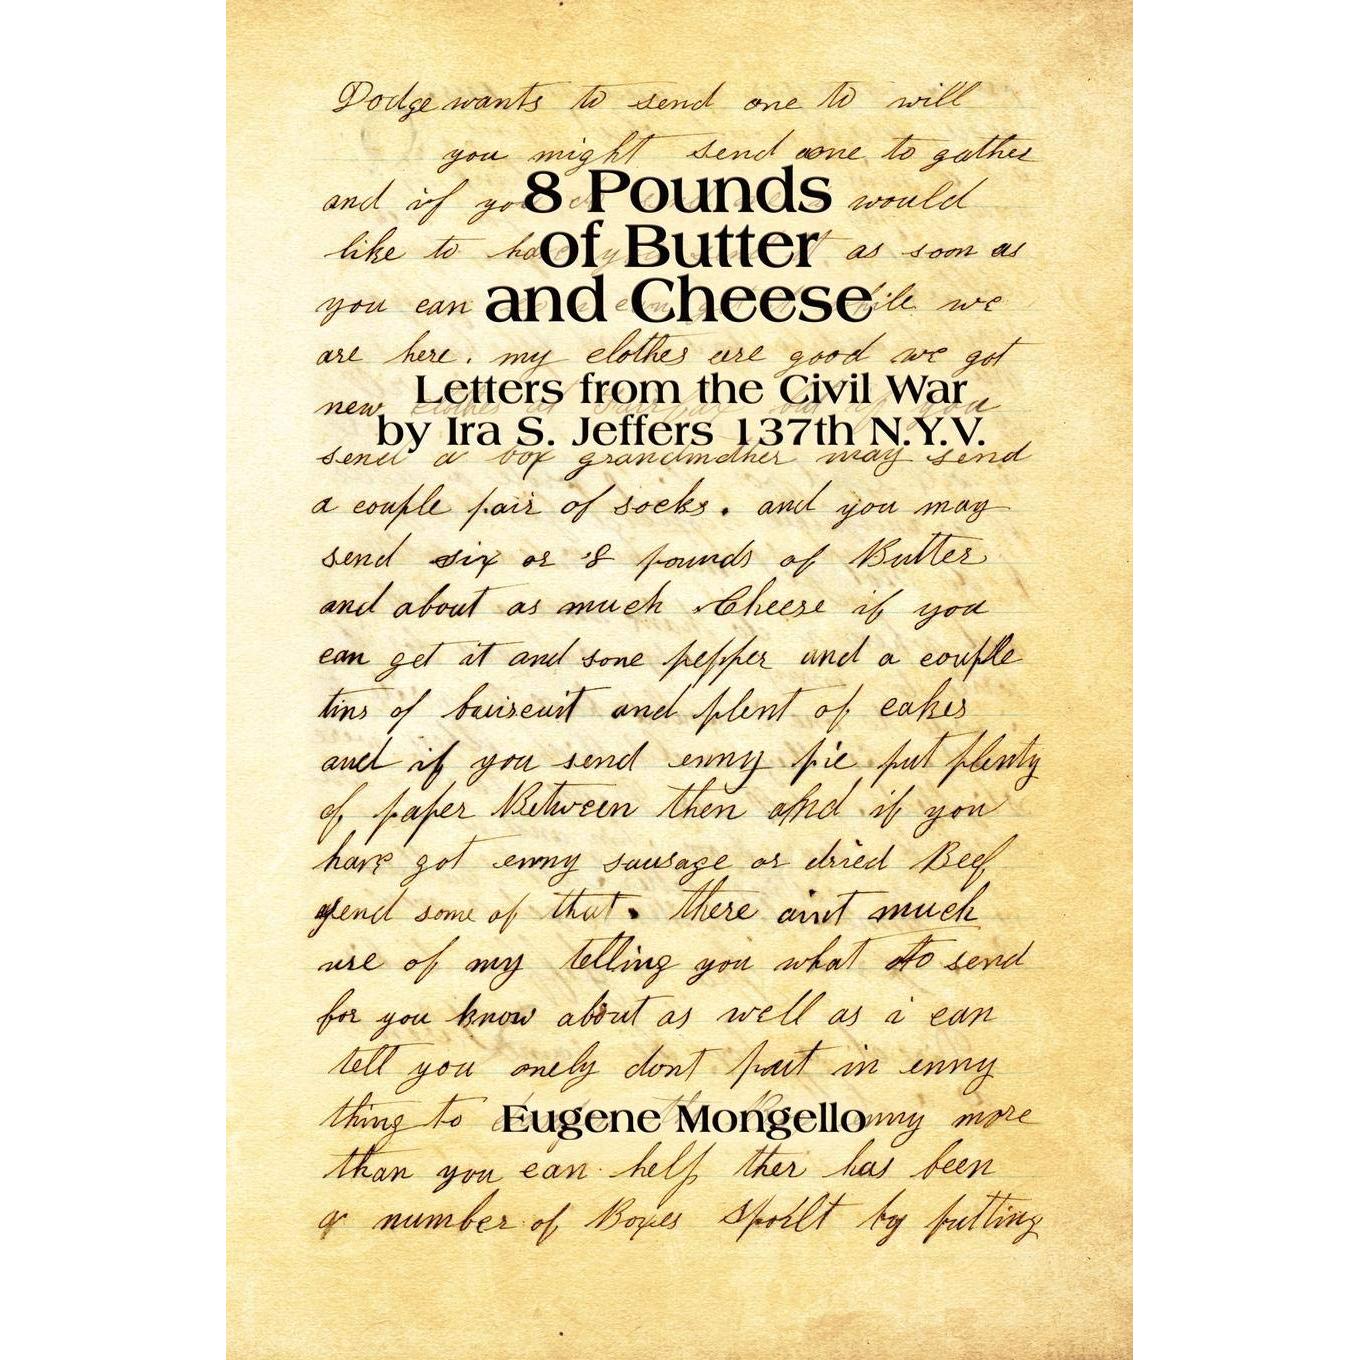 Dodge wants to send one to will
you might send one to gather
8 Pounds
and if you would
of Butter
like to have as soon as
and Cheese
you can while we
are here. my clothes are good we got
Letters from the Civil War
new clothes at Fairfax but if you
by Ira S. Jeffers 137th N.Y.V.
send a box grandmother may send
a couple pair of socks. and you may
send six or 8 pounds of Butter
and about as much Cheese if you
can get it and sone pepper and a couple
tins of bauiscuit and plent of cakes
and if you send enny pie put plenty
of paper Between then and if you
have got enny sausage or dried Beef
send some of that. there aint much
use of my telling you what to send
for you know about as well as i can
tell you onely dont put in enny
thing to enny more
Eugene Mongello
than you can help ther has been
a number of Boxes Spoilt by putting